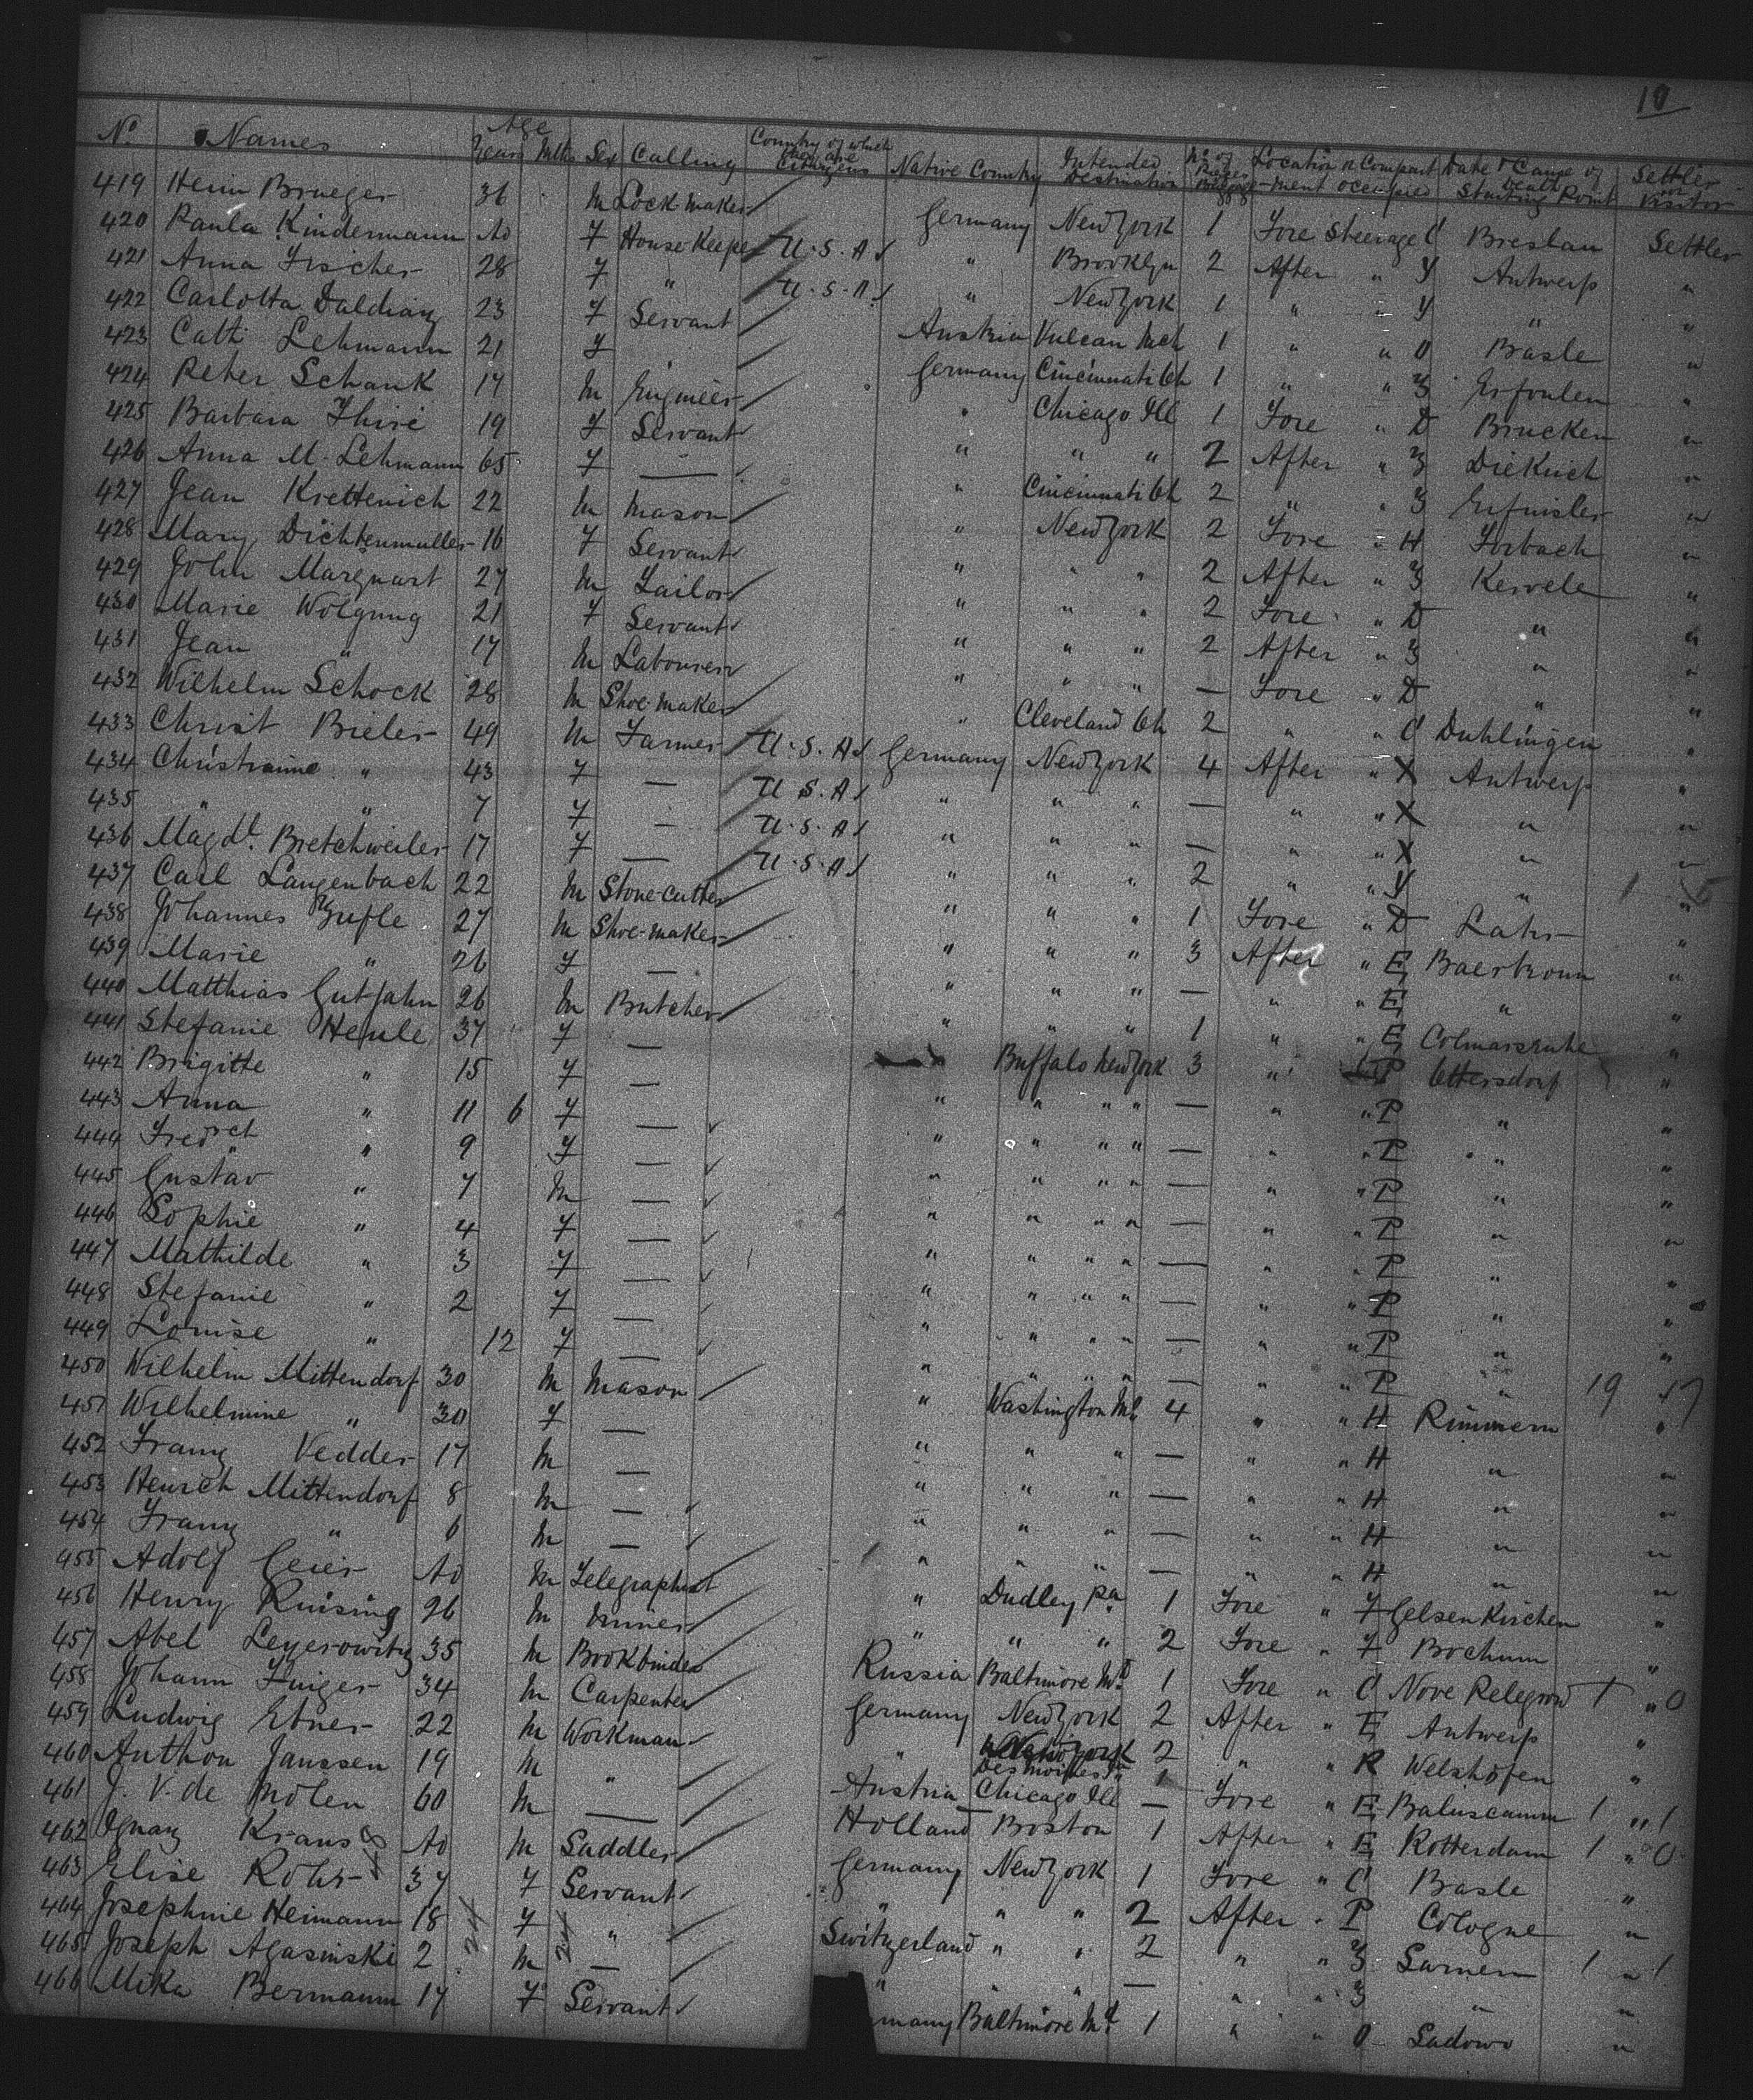 10
No. Names Age Years Mths Sex Calling Country of which they are Citizens Native Country Intended Destination No. of Pieces Baggage Location or Compartment occupied Date & Cause of Death Starting Point Settler or Visitor
419 Heinr Brueger 36 M Lock maker Germany New York 1 Fore Steerage C Breslau Settler
420 Paula Kindermann 40 F House Keeper U.S.A " Brooklyn 2 After " Y Antwerp "
421 Anna Fischer 28 F " U.S.A. " New York 1 " " Y " "
422 Carlotta 23 F Servant Austria Vulcan Mch 1 " " O Basle "
423 Cath Lehmann 21 F Germany Cincinnati Oh 1 " " Z "
424 Peter Schank 17 M Engineer " Chicago Ill 1 Fore " D Brucken "
425 Barbara Thiré 19 F Servant " " " 2 After " Z Diekirch "
426 Anna M. Lehmann 65 F — " Cincinnati Oh 2 " " Z "
427 Jean Krettenich 22 M Mason " New York 2 Fore " H Forbach "
428 Mary Dichtenmuller 16 F Servant " " " 2 After " Z Kervele "
429 John Marquart 27 M Tailor " " " 2 Fore " D " "
430 Marie Wolgung 21 F Servant " " " 2 After " Z " "
431 Jean " 17 M Labourer " " " — Fore " D " "
432 Wilhelm Schock 28 M Shoe-maker " Cleveland Oh 2 " " C Duhlingen "
433 Christ Bieler 49 M Farmer U.S.A Germany New York 4 After " X Antwerp "
434 Christianne " 43 F — U.S.A " " " — " " X " "
435 " " 7 F — U.S.A " " " — " " X " "
436 Magd. Bretchweiler 17 F — U.S.A " " " 2 " " Y " "
437 Carl Langenbach 22 M Stone-cutter " " " 1 Fore " D Lahr "
438 Johannes Zufle 27 M Shoe-maker " " " 3 After " E Baerbronn "
439 Marie " 26 F — " " " — " " E " "
440 Matthias Gutjahn 26 M Butcher " " " 1 " " E Colmarsruhe "
441 Stefanie Henle 37 F — Buffalo New York 3 " P Ottersdorf "
442 Brigitte " 15 F — " " " " — " " P " "
443 Anna " 11 6 F — " " " " — " " P " "
444 Fredrch " 9 F — " " " " — " " P " "
445 Gustav " 7 M — " " " " — " " P " "
446 Sophie " 4 F — " " " " — " " P " "
447 Mathilde " 3 F — " " " " — " " P " "
448 Stefanie " 2 F — " " " " — " " P " "
449 Louise " 12 F — " " " " — " " P " 19 17
450 Wilhelm Mittendorf 30 M Mason " Washington 4 " " H Rimmern "
451 Wilhelmine " 30 F — " " " — " " H " "
452 Franz Vedder 17 M — " " " — " " H " "
453 Heinrch Mittendorf 8 M — " " " — " " H " "
454 Franz " 6 M — " " " — " " H " "
455 Adolf Geier 40 M Telegraphist " Dudley Pa 1 Fore " F Gelsenkirchen "
456 Henry Ruising 26 M Miner " " " 2 Fore " F Bochum "
457 Abel Leyerowitz 35 M Bookbinder Russia Baltimore Md. 1 Fore " C Nove 1 " 0
458 Johann Finger 34 M Carpenter Germany New York 2 After " E Antwerp "
459 Ludwig Ebner 22 M Workman " Des Moines 2 " " R Welshofen "
460 Anthon Janssen 19 M " Austria Chicago Ill — Fore " E 1 " 1
461 J. V. de Molen 60 M — Holland Boston 1 After " E Rotterdam 1 " 0
462 Ignaz Kraus 40 M Saddler Germany New York 1 Fore " C Basle "
463 Elise Rohr 37 F Servant " " " 2 After " P Cologne "
464 Josephine Heimann 18 F " Switzerland " " 2 " " Z Sarnen 1 " 1
465 Joseph Agasinski 2 M — " " " — " " Z " "
466 Mika Bermann 17 F Servant many Baltimore Md. 1 " " O Sadowo "